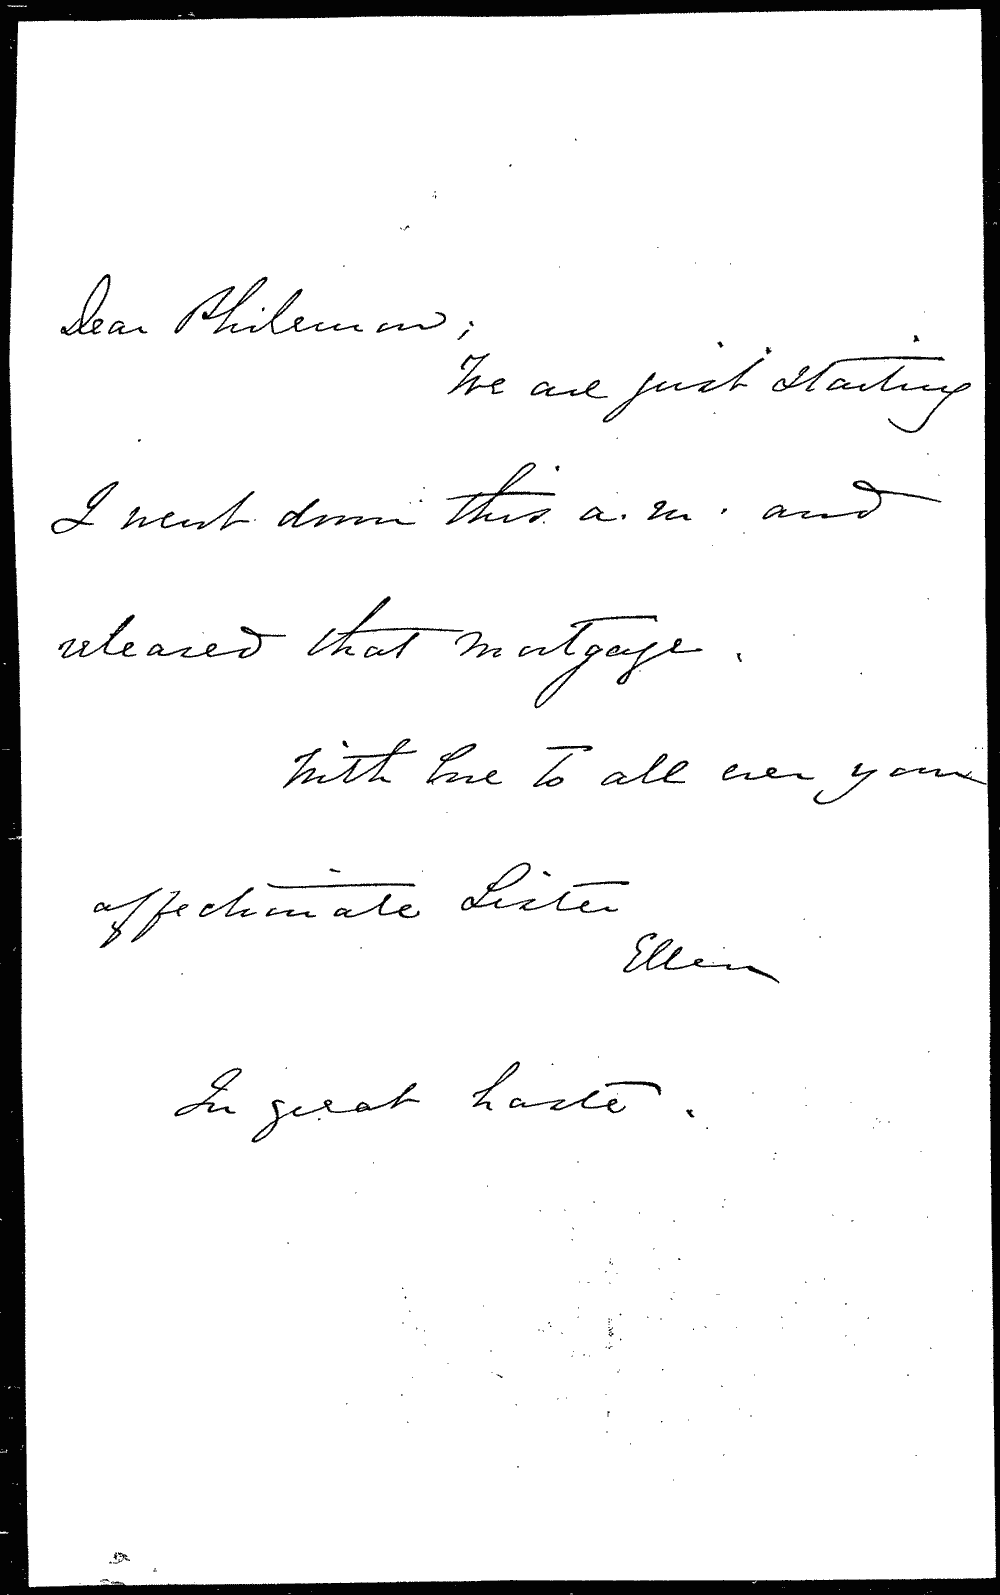 Dear Philemon;
We are just starting
I went down this a.m. and
released that mortgage.
With love to all ever your
affectionate Sister
Ellen
In great haste.